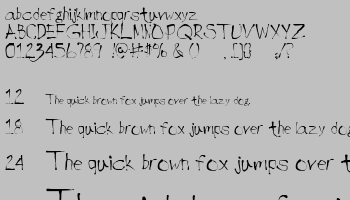 abcdefghijklmnopqrstuvwxyz
ABCDEFGHIJKLMNOPQRSTUVWXYZ
0123456789 !@#$% & () ,.[]{} :/?
12 The quick brown fox jumps over the lazy dog.
18 The quick brown fox jumps over the lazy dog
24 The quick brown fox jumps over the